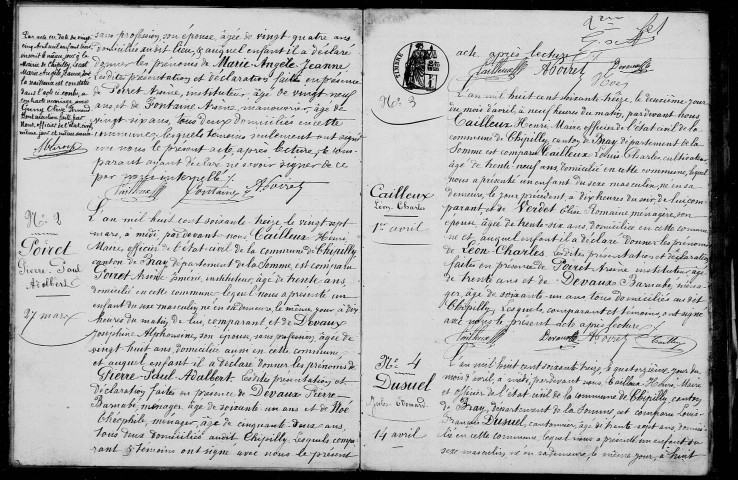 sans profession, son épouse, âgée de vingt quatre ans
domiciliée audit lieu, & auquel enfant il a déclaré
donner les prénoms de Marie Angèle Jeanne
Lesdites présentation et déclaration faites en présence
de Poiret Arsène, instituteur, âgé de vingt neuf
ans et de Fontaine Arsène, manouvrier, âgé de
vingt six ans, tous deux domiciliés en cette
commune, lesquels témoins seulement ont signé
avec nous le présent acte, après lecture, le com-
parant ayant déclaré ne savoir signer de ce
par nous interpellé
Cailleux Fontaine A Poiret
No. 2
Poiret
Pierre Paul
Adalbert
27 mars
L'an mil huit cent soixante seize, le vingt sept
mars, à midi par devant nous Cailleux Henri
Maire, officier de l'état civil de la commune de Chipilly
canton de Bray département de la Somme, est comparu
Poiret Arsène Zéméri, instituteur, âgé de trente ans,
domicilié en cette commune, lequel nous a présenté un
enfant du sexe masculin, né en sa demeure, le même jour, à dix
heures du matin, de lui, comparant et de Devaux
Joséphine Alphonsine, son épouse, sans profession, âgée de
vingt huit ans, domiciliée aussi en cette commune,
et auquel enfant il a déclaré donner les prénoms de
Pierre Paul Adalbert. Lesdites présentation et
déclaration faites en présence de Devaux Pierre
Barnabé, ménager, âgé de soixante un ans et de Noé
Théophile, ménager, âgé de cinquante deux ans,
tous deux domiciliés audit Chipilly, lesquels compa-
rant & témoins ont signé avec nous le présent
acte après lecture
Cailleux A Poiret Devaux
Noé
TIMBRE
No. 3
Cailleux
Léon Charles
1er avril
L'an mil huit cent soixante seize, le deuxième jour
du mois d'avril, à neuf heures du matin, par devant nous
Cailleux Henri Maire officier de l'état civil de la
commune de Chipilly, canton de Bray département de la
Somme est comparu Cailleux Louis Charles, cultivateur
âgé de trente neuf ans, domicilié en cette commune, lequel
nous a présenté un enfant du sexe masculin, né en sa
demeure, le jour précédent à dix heures du soir, de lui, com-
parant et de Verdet Elise Romaine ménagère, son
épouse, âgée de trente six ans, domiciliée en cette commune
et auquel enfant il a déclaré donner les prénoms
de Léon Charles. Lesdites présentation et déclaration
faites en présence de Poiret Arsène instituteur âgé
de trente ans et de Devaux Barnabé, ména-
ger, âgé de soixante un ans tous domiciliés audit
Chipilly. Lesquels, comparant et témoins, ont signé
avec nous le présent acte après lecture
Cailleux Devaux A Poiret Cailleux
No. 4
Dusuel
Jules Edouard
14 avril
L'an mil huit cent soixante seize, le quatorzième jour du
mois d'avril, à midi, par devant nous Cailleux Henri, Maire
et officier de l'état civil de la commune de Chipilly, canton
de Bray, département de la Somme, est comparu Louis
François Dusuel, cantonnier, âgé de trente sept ans, domici-
lié en cette commune, lequel nous a présenté un enfant du
sexe masculin, né en sa demeure, le même jour, à huit